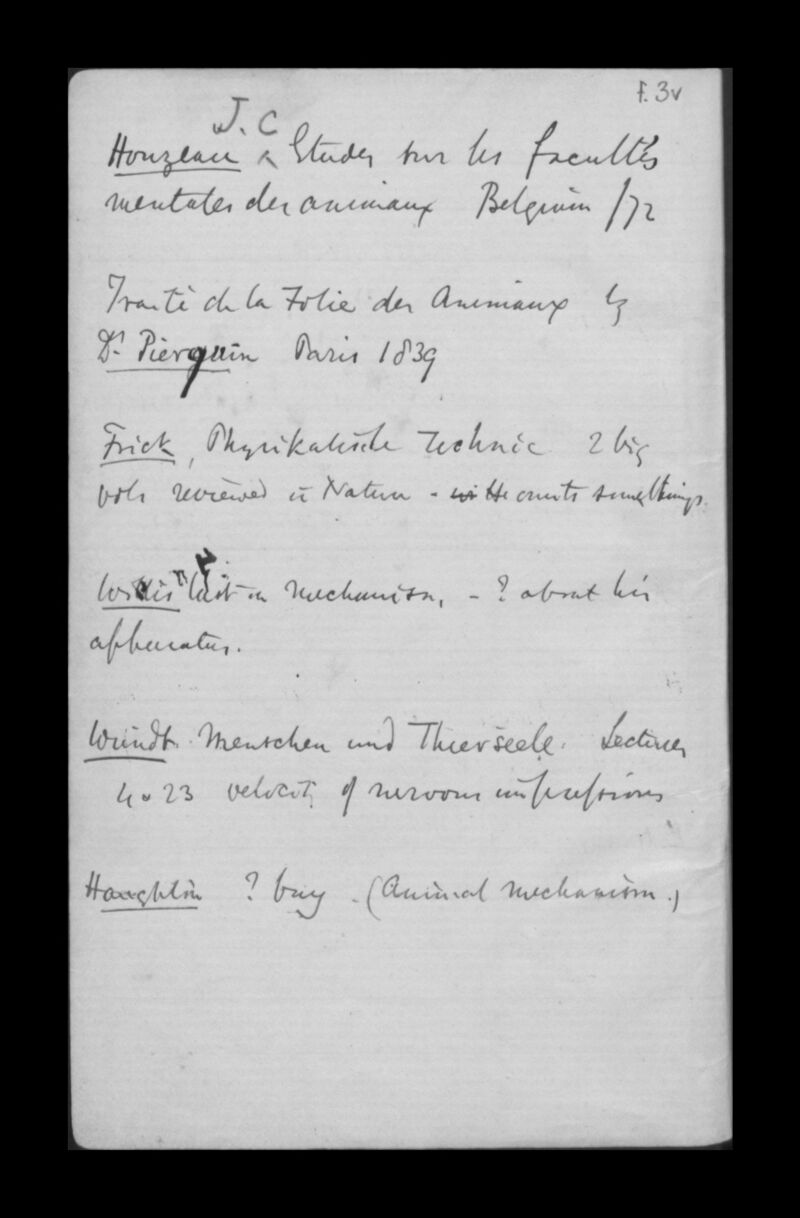 f. 3v
J. C
Houzeau ^ Etudes sur les facultés
mentales des animaux Belgium /72
Traité de la Folie des Animaux by
Dr. Pierquin Paris 1839
Frick, Physikalische Technic 2 big
vols reviewed in Nature - He omits some things.
Willis last on mechanism, - ? about his
apparatus.
Wundt. Menschen und Thierseele. Lectures
4 & 23 velocity of nervous impressions
Haughton ? buy. (Animal mechanism.)